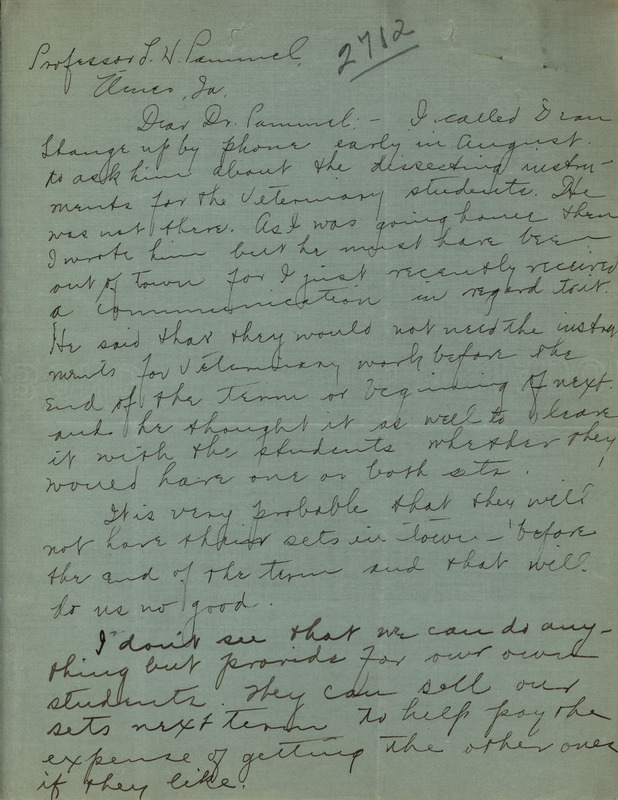 2712
Professor L. H. Pammel,
Ames, Ia.
Dear Dr. Pammel:- I called Dean
Stange up by phone early in August.
to ask him about the dissecting instru-
ments for the Veterinary students. He
was not there. As I was going home then
I wrote him but he must have been
out of town for I just recently received
a communication in regard to it.
He said that they would not need the instru
ments for Veterinary work before the
end of the term or beginning of next.
and he thought it as well to leave
it with the students whether they
would have one or both sets.
It is very probable that they will
not have their sets in town - before
the end of the term and that will
do us no good.
I don't see that we can do any-
thing but provide for our own
students. They can sell our
sets next term to help pay the
expense of getting the other ones
if they like.